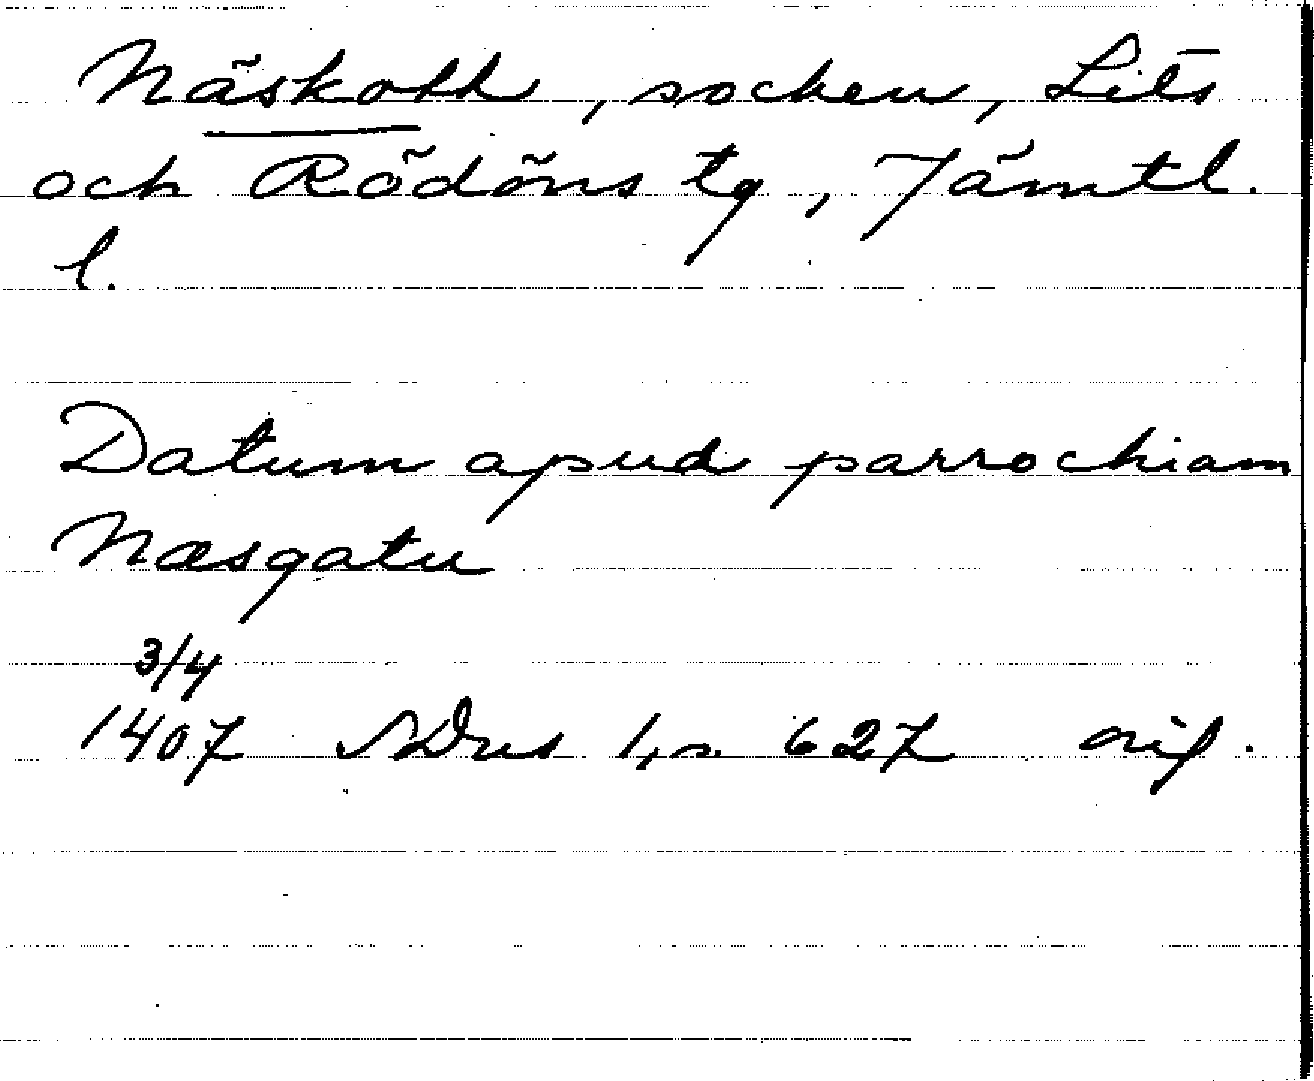 Näskott, socken, Lits
och Rödöns tg, Jämtl.
l.
Datum apud parrochiam
Næsgatu
3/4
1407 SDns 1, s. 627 orig.